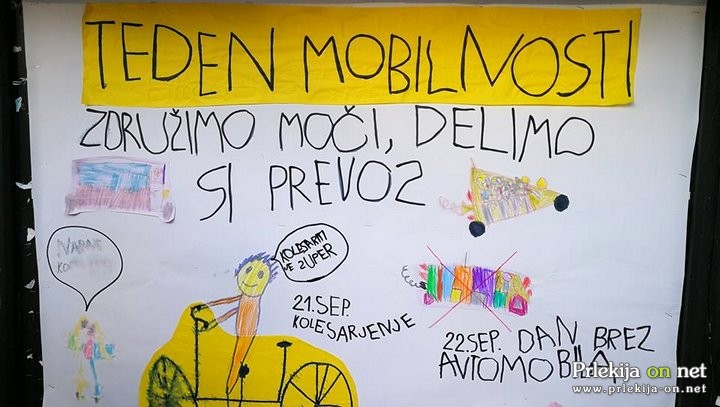 TEDEN MOBILNOSTI
ZDRUŽIMO MOČI, DELIMO
SI PREVOZ
KOLESARITI
JE ZUPER
21. SEP.
KOLESARJENJE
22. SEP. DAN BREZ
AVTOMOBILA
Prlekija on net
www.prlekija-on.net